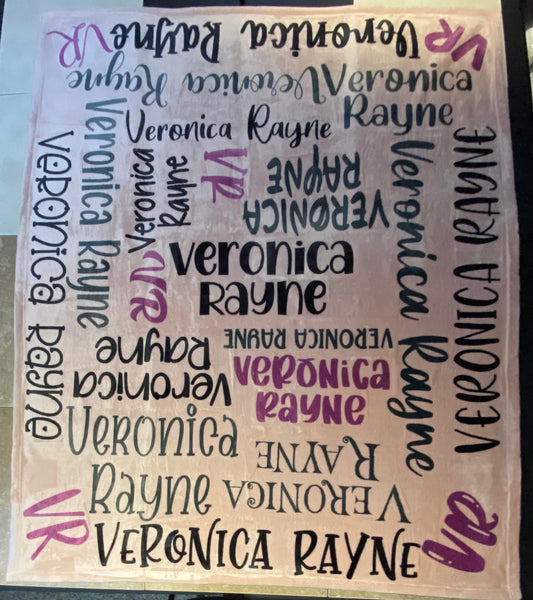 VR
Veronica Rayne
VR
Veronica Rayne
Veronica
Rayne
Veronica Rayne
Veronica Rayne
Veronica Rayne
Veronica
Rayne
VR
VERONICA
RAYNE
Veronica Rayne
VERONICA RAYNE
VR
Veronica
Rayne
VERONICA RAYNE
Veronica
Rayne
Veronica
Rayne
Veronica
Rayne
VERONICA
RAYNE
VR
VERONICA RAYNE
VR